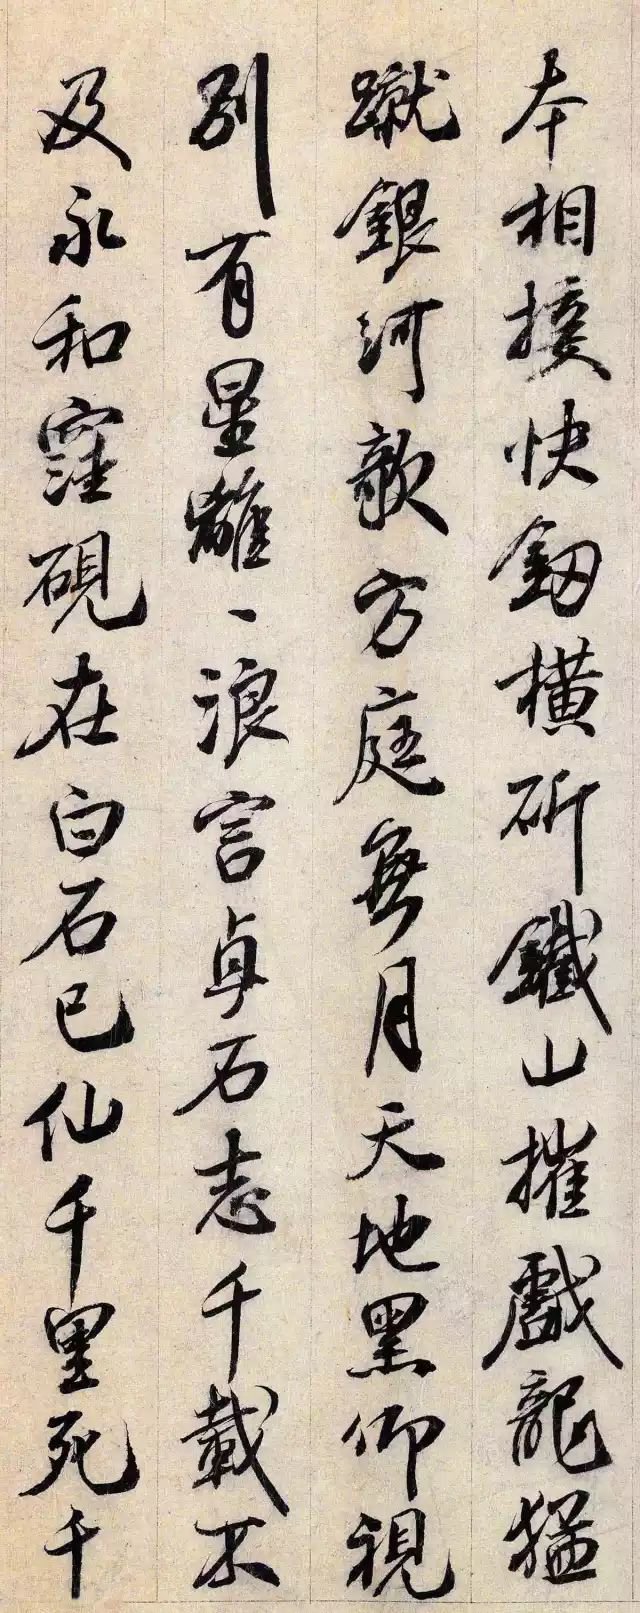 本相接快劔横斫鐵山摧戲龍猛
蹴銀河歌方庭無月天地黑仰視
別有星離〻浪言貞石志千載不
及永和窪硯在白石已仙千里死千